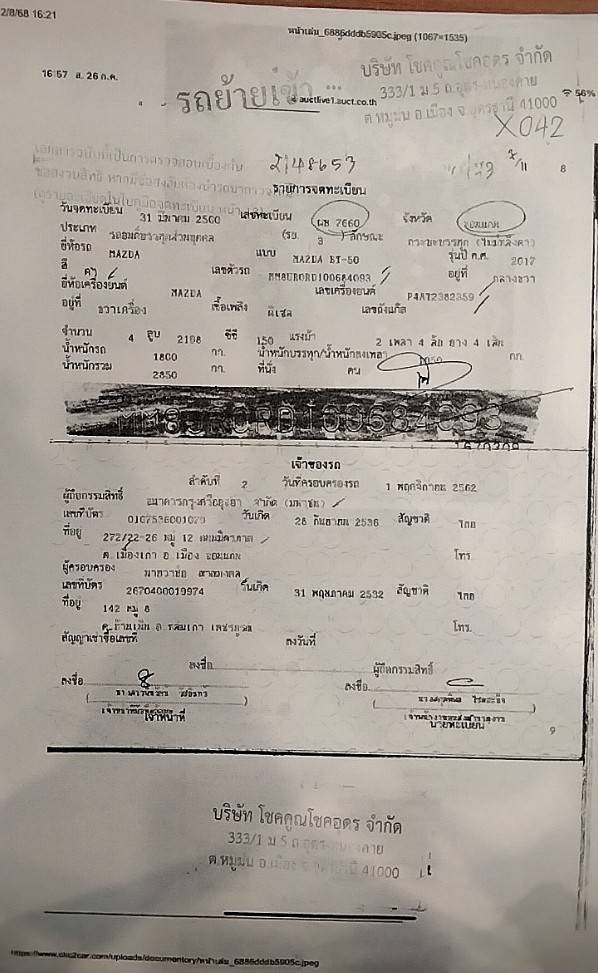 2/8/68 16:21
หน้าเล่ม_6886dddb5905c.jpeg (1067×1535)
16:57 ส. 26 ก.ค.
บริษัท โชคคูณโชคอุดร จำกัด
333/1 ม 5 ถ.อุดร-หนองคาย
ต.หมูม่น อ.เมือง จ.อุดรธานี 41000
56%
รถย้ายเข้า
auctlive1.auct.co.th
X042
2148653
8
รายการจดทะเบียน
วันจดทะเบียน 31 มีนาคม 2560 เลขทะเบียน ผษ 7660 จังหวัด ขอนแก่น
ประเภท รถยนต์บรรทุกส่วนบุคคล (รย. 3 ) ลักษณะ กระบะบรรทุก (ไม่มีหลังคา)
ยี่ห้อรถ MAZDA แบบ MAZDA BT-50 รุ่นปี ค.ศ. 2017
สี ดำ เลขตัวรถ MM8UR0RD100684093 อยู่ที่ กลางขวา
ยี่ห้อเครื่องยนต์ MAZDA เลขเครื่องยนต์ P4AT2382359
อยู่ที่ ขวาเครื่อง เชื้อเพลิง ดีเซล เลขถังแก๊ส
จำนวน 4 สูบ 2198 ซีซี 150 แรงม้า 2 เพลา 4 ล้อ ยาง 4 เส้น
น้ำหนักรถ 1800 กก. น้ำหนักบรรทุก/น้ำหนักลงเพลา 1050 กก.
น้ำหนักรวม 2850 กก. ที่นั่ง คน
MM8UR0RD100684093
เจ้าของรถ
ลำดับที่ 2 วันที่ครอบครองรถ 1 พฤศจิกายน 2562
ผู้ถือกรรมสิทธิ์ ธนาคารกรุงศรีอยุธยา จำกัด (มหาชน)
เลขที่บัตร 0107536001079 วันเกิด 28 กันยายน 2536 สัญชาติ ไทย
ที่อยู่ 272/22-26 หมู่ 12 ถนนมิตรภาพ
ต.เมืองเก่า อ.เมือง ขอนแก่น โทร.
ผู้ครอบครอง
เลขที่บัตร 2670400019974 วันเกิด 31 พฤษภาคม 2532 สัญชาติ ไทย
ที่อยู่ 142 หมู่ 8
โทร.
สัญญาเช่าซื้อเลขที่ ลงวันที่
ลงชื่อ ผู้ถือกรรมสิทธิ์
ลงชื่อ ลงชื่อ
เจ้าหน้าที่ นายทะเบียน
9
บริษัท โชคคูณโชคอุดร จำกัด
333/1 ม 5 ถ.อุดร-หนองคาย
ต.หมูม่น อ.เมือง จ.อุดรธานี 41000
https://www.ckc2car.com/uploads/documentory/หน้าเล่ม_6886dddb5905c.jpeg